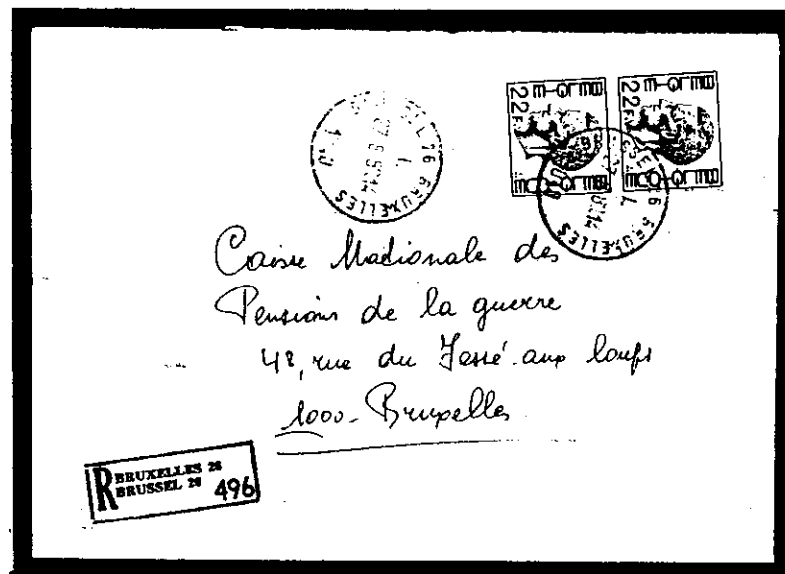 BELGIQUE
22F
BELGIQUE
22F
BRUXELLES
BRUXELLES
Caisse Nationale des
Pensions de la guerre
48, rue du Fossé-aux loups
1000-Bruxelles
R BRUXELLES 26
BRUSSEL 26 496